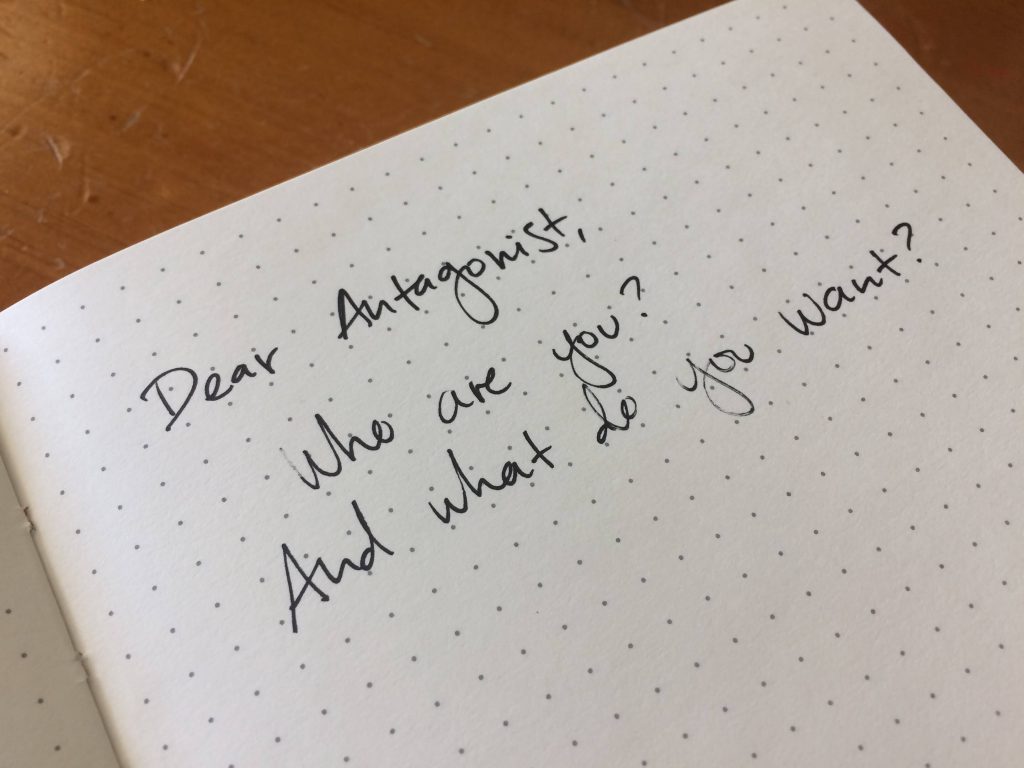 Dear Antagonist,
Who are you?
And what do you want?